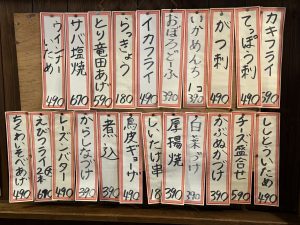 カキフライ 590
てっぽう刺 490
がつ刺 490
いかめんち 1コ 390
おぼろどーふ 390
イカフライ 490
らっきょう 180
とり竜田あげ 590
サバ塩焼 690
ウインナーいため 490
ししとういため 490
チーズ盛合せ 590
かぶぬかづけ 390
白菜づけ 390
厚揚焼 390
しいたけ串 18
鳥皮ギョーザ 490
煮込 390
からしなづけ 390
レーズンバター 490
えびフライ 2本 690
ちくわいそべあげ 490